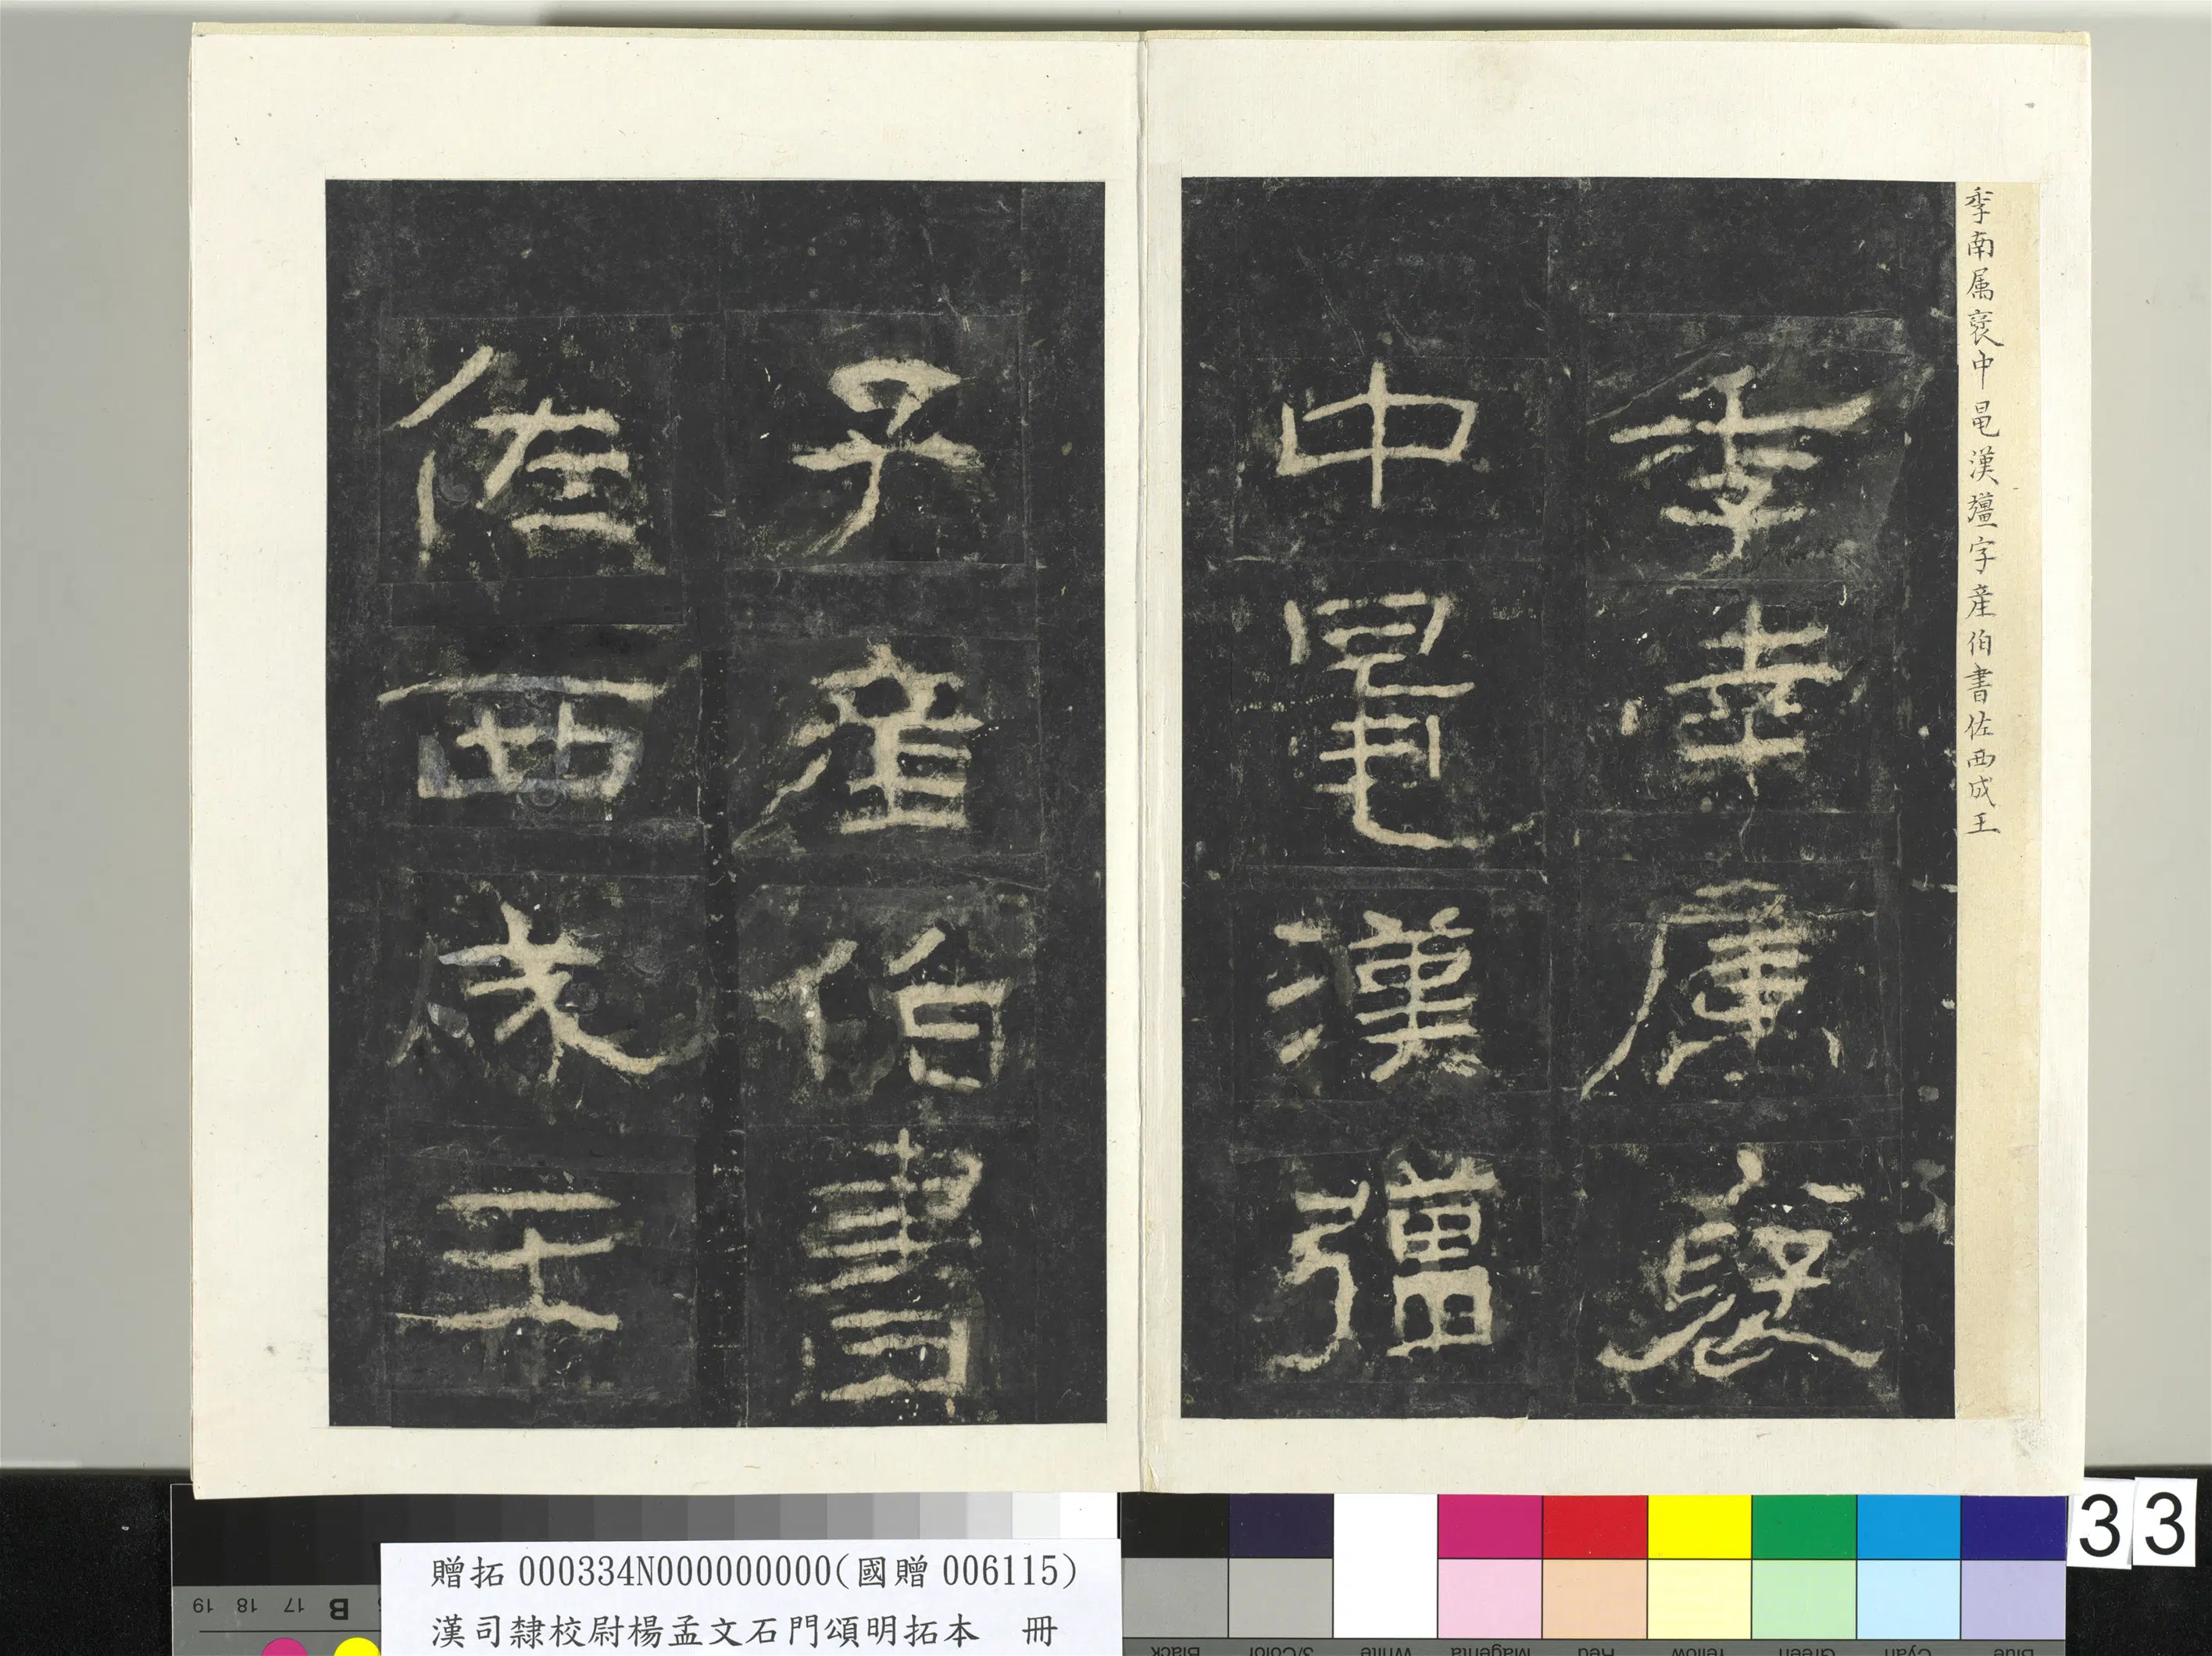 季南属褒中鼂漢彊字産伯書佐西成王
季南属褒
中鼂漢彊
字産伯書
佐西成王
33
贈拓 000334N000000000(國贈 006115)
漢司隸校尉楊孟文石門頌明拓本 冊
19 18 17 B
Black 3/Color White Magenta Red Yellow Green Cyan Blue